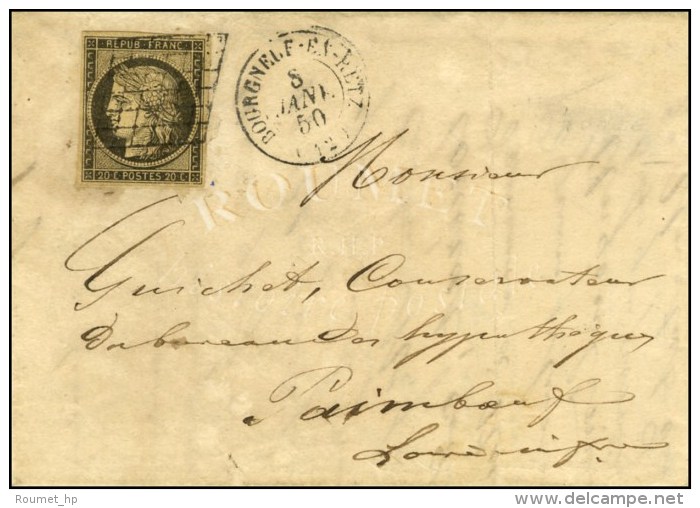 REPUB. FRANC.
20 c. POSTES 20 c.
BOURGNEUF-EN-RETZ
8
JANV.
50
(42)
ROUMET
Monsieur
Guichet, Conservateur
du bureau des hypothèques
Paimboeuf
Loire infre
Roumet_hp
posted on delcampe.net